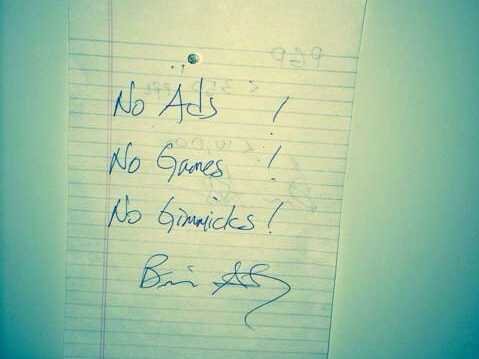 No Ads !
No Games !
No Gimmicks!